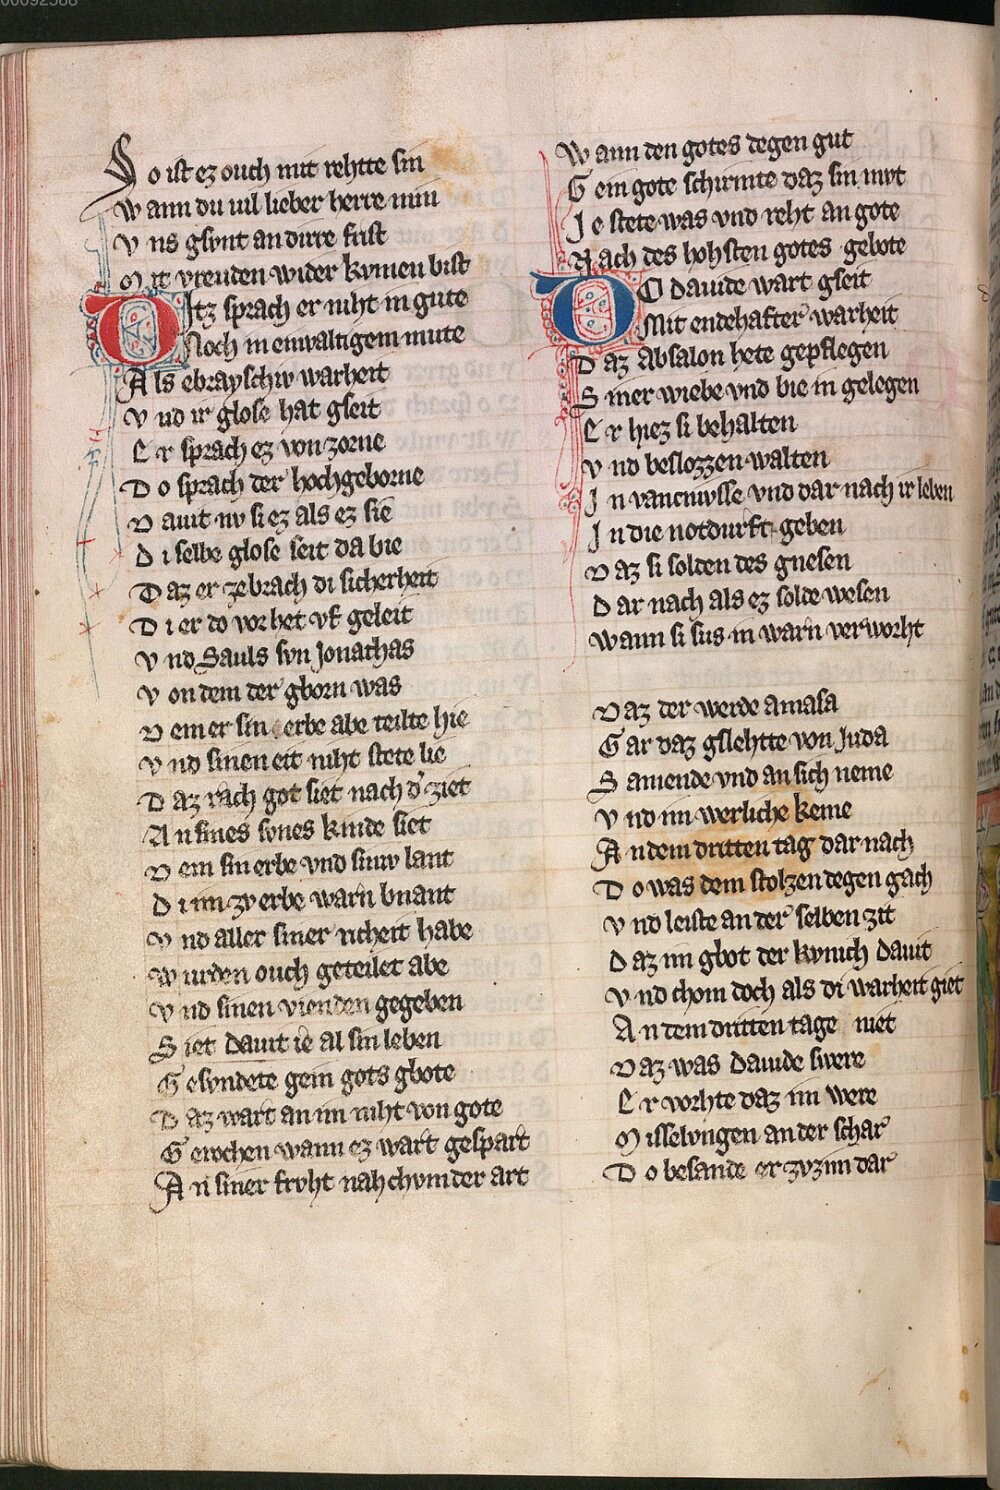 00092588
So ist ez ouch mit rehtte sin
Wann du uil lieber herre min
Vns gsvnt an dirre frist
Mit vreuden wider kvmen bist
Ditz sprach er niht in gute
Noch in einvaltigem mute
Als ebrayschiv warheit
Vnd ir glose hat gseit
Er sprach ez von zorne
Do sprach der hochgeborne
Dauit nv si ez als ez sie
Di selbe glose seit da bie
Daz er zebrach di sicherheit
Di er do vor het vf geleit
Vnd Sauls svn Jonathas
Von dem der gborn was
Dem er sin erbe abe teilte hie
Vnd sinen eit niht stete lie
Daz rach got siet nach d' ziet
An sines svnes kinde siet
Dem sin erbe vnd siniv lant
Di im zv erbe warn bnant
Vnd aller siner richeit habe
Wurden ouch geteilet abe
Vnd sinen vienden gegeben
Siet dauit ie al sin leben
Gesvndete gein gots gbote
Daz wart an im niht von gote
Gerochen wann ez wart gespart
An siner frvht nah chvmder art
Wann den gotes degen gut
Gein gote schirmte daz sin mvt
Je stete was vnd reht an gote
Nach des hohsten gotes gebote
DO dauide wart gseit
Mit endehafter warheit
Daz Absalon hete gepflegen
Siner wiebe vnd bie in gelegen
Er hiez si behalten
Vnd beslozzen walten
In vancnvsse vnd dar nach ir leben
In die notdurft geben
Daz si solden des gnesen
Dar nach als ez solde wesen
Wann si sus in warn verworht
Daz der werde amasa
Gar daz gslehtte von Juda
Samende vnd an sich neme
Vnd im werliche keme
An dem dritten tag dar nach
Do was dem stolzen degen gach
Vnd leiste an der selben zit
Daz im gbot der kvnich dauit
Vnd chom doch als di warheit giet
An dem dritten tage niet
Daz was dauide swere
Er vorhte daz im were
Misselvngen an der schar
Do besande er zvzim dar